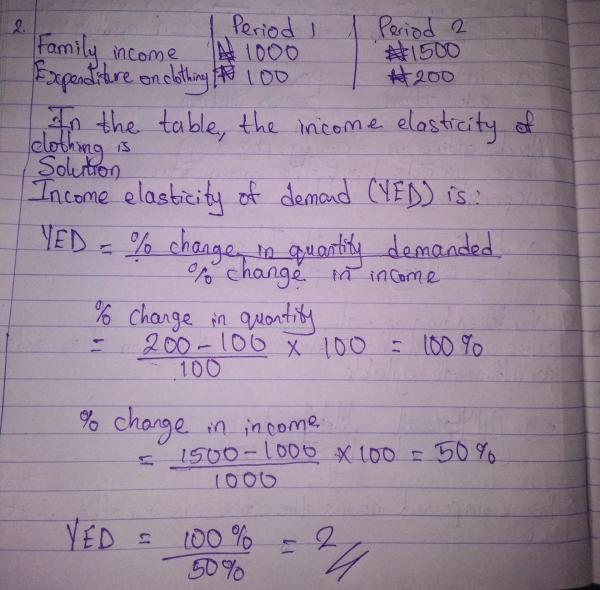 2. | Period 1 | Period 2
Family income | ₦ 1000 | ₦1500
Expenditure on clothing | ₦ 100 | ₦200
In the table, the income elasticity of
clothing is
Solution
Income elasticity of demand (YED) is:
YED = % change in quantity demanded
% change in income
% change in quantity
= 200 - 100 × 100 = 100%
100
% change in income
= 1500 - 1000 × 100 = 50%
1000
YED = 100% = 2
50%